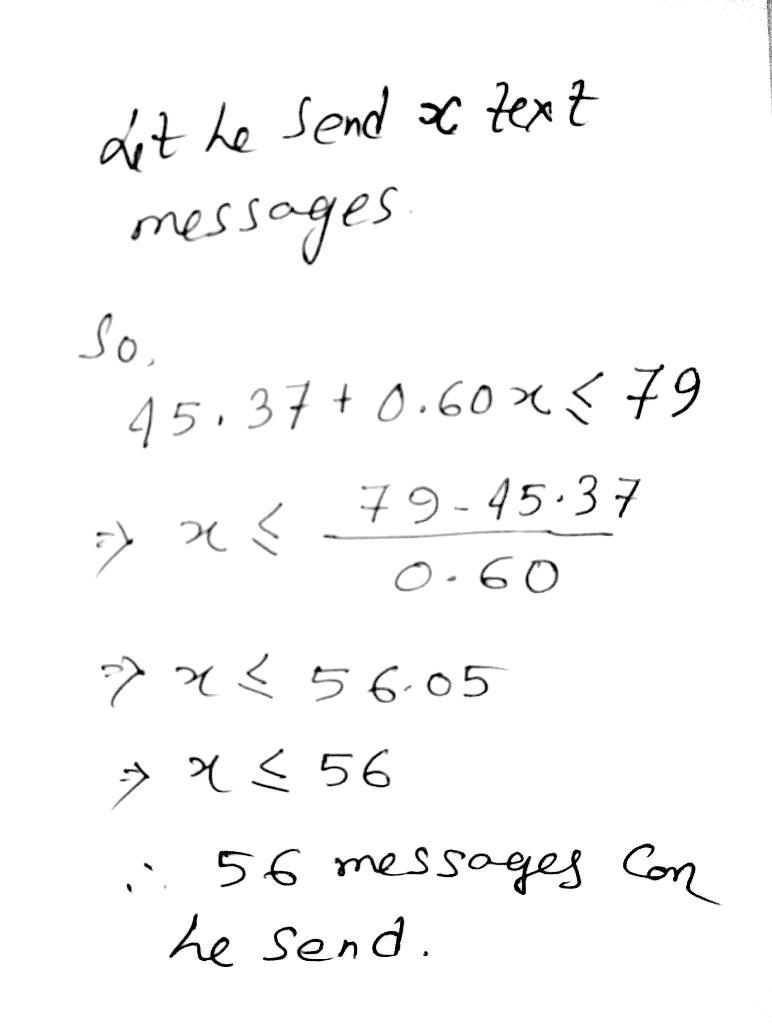 Let he send x text
messages.
So,
45.37 + 0.60x ≤ 79
⇒ x ≤ (79 - 45.37) / 0.60
⇒ x ≤ 56.05
⇒ x ≤ 56
∴ 56 messages can
he send.